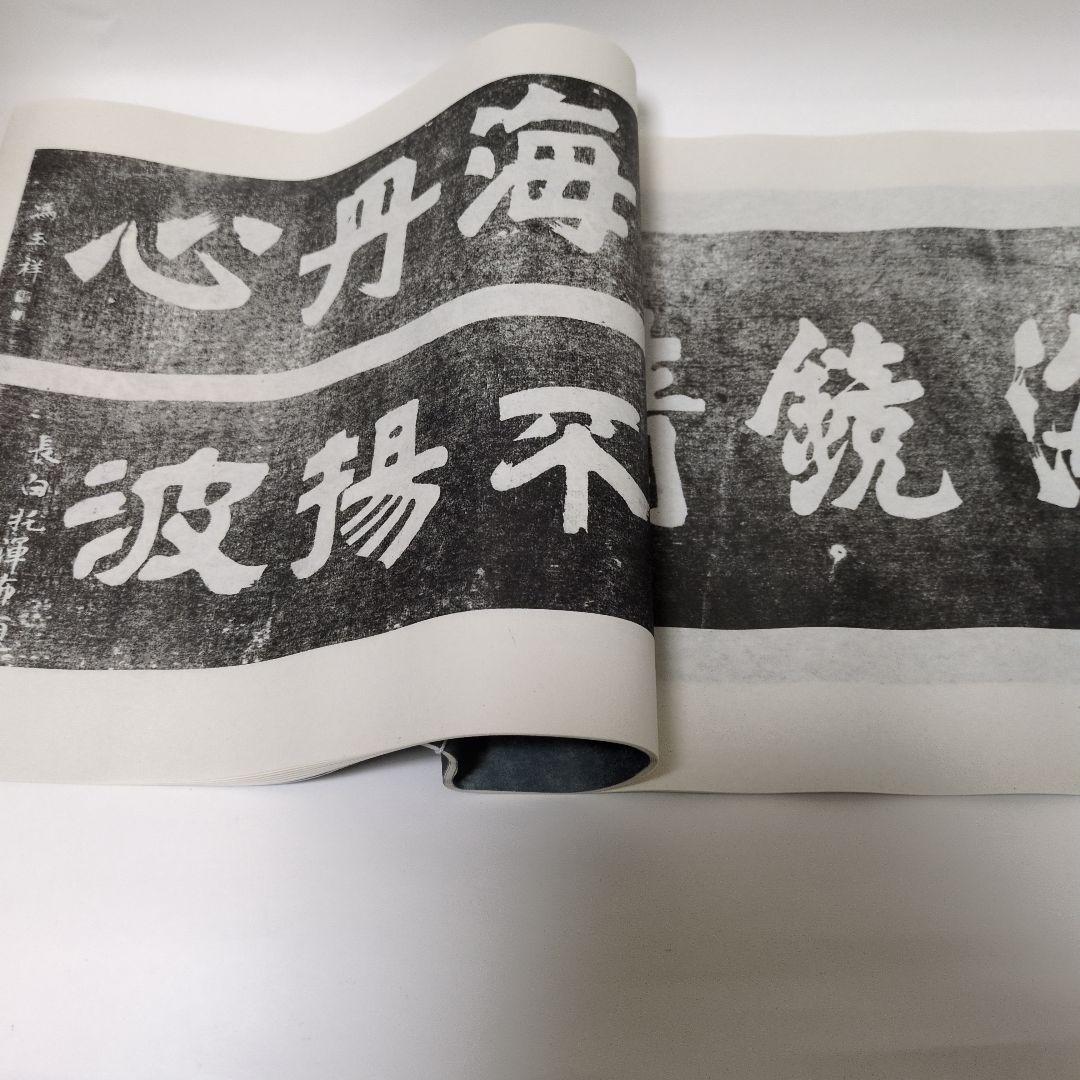 鏡
海丹心
馮玉祥
不揚波
長白托渾布